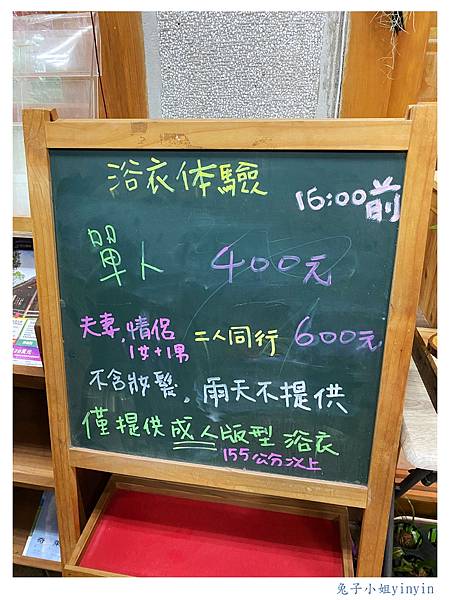 浴衣体驗
16:00前
單人 400元
夫妻,情侶 二人同行 600元
1女+1男
不含妝髮,雨天不提供
僅提供成人版型浴衣
155公分以上
兔子小姐yinyin